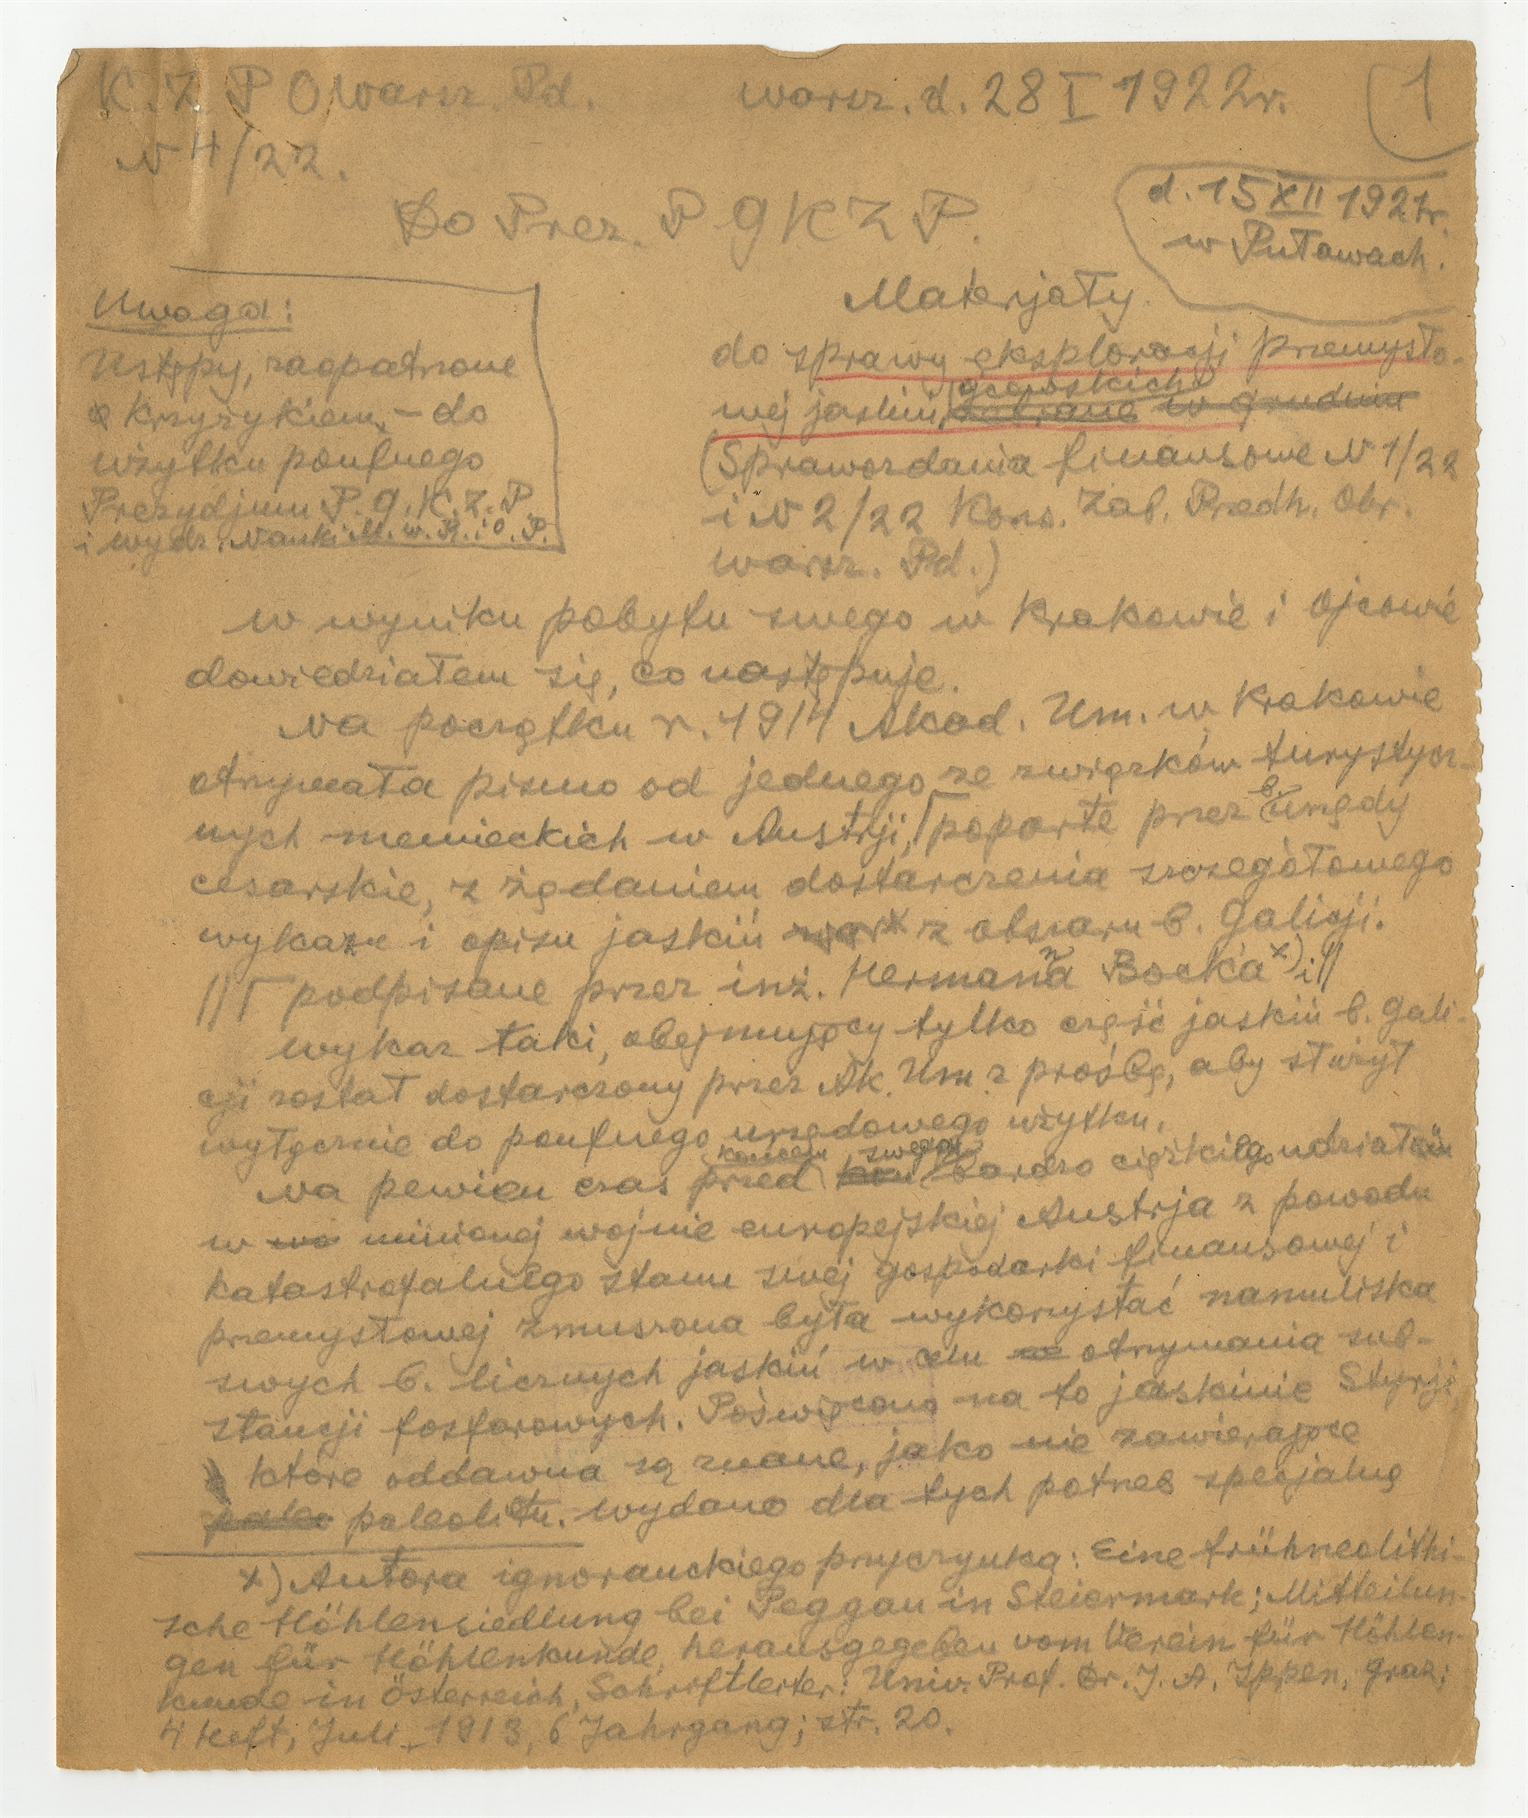 K. Z P O Warsz. Pd. Warsz. d. 28 I 1922 r. 1
N 4/22.
d. 15 XII 1921 r.
w Puławach.
Do Prez. P G K Z P.
Uwaga:
Ustępy, zaopatrzone
krzyżykiem, – do
użytku poufnego
Prezydjum P. G. K. Z. P.
i wydz. Nauki M. W. R. i O. P.
Materjały
do sprawy eksploracji przemysło-
wej jaskiń ojcowskich zebrane w grudniu
(Sprawozdania finansowe N 1/22
i N 2/22 Kons. Zab. Predh. Okr.
Warsz. Pd.)
W wyniku pobytu swego w Krakowie i Ojcowie
dowiedziałem się, co następuje.
Na początku r. 1914 Akad. Um. w Krakowie
otrzymała pismo od jednego ze związków turystycz-
nych niemieckich w Austrji, poparte przez b. urzędy
cesarskie, z żądaniem dostarczenia szczegółowego
wykazu i opisu jaskiń z obszaru b. Galicji.
podpisane przez inż. Hermanna Bocka x) i
Wykaz taki, obejmujący tylko część jaskiń b. Gali-
cji został dostarczony przez Ak. Um. z prośbą, aby służył
wyłącznie do poufnego urzędowego użytku.
Na pewien czas przed końcem swego bardzo ciężkiego udziału
w minionej wojnie europejskiej Austrja z powodu
katastrofalnego stanu swej gospodarki finansowej i
przemysłowej zmuszona była wykorzystać namuliska
swych b. licznych jaskiń w celu otrzymania sub-
stancji fosforowych. Poświęcono na to jaskinie Styrji,
które oddawna są znane, jako nie zawierające
paleo paleolitu. Wydano dla tych potrzeb specjalną
x) Autora ignoranckiego przyczynka: Eine frühneolithi-
sche Höhlensiedlung bei Peggau in Steiermark; Mitteilun-
gen für Höhlenkunde, herausgegeben vom Verein für Höhlen-
kunde in Österreich, Schriftleiter: Univ. Prof. Dr. J. A. Ippen, Graz;
4 Heft, Juli, 1913, 6 Jahrgang; str. 20.